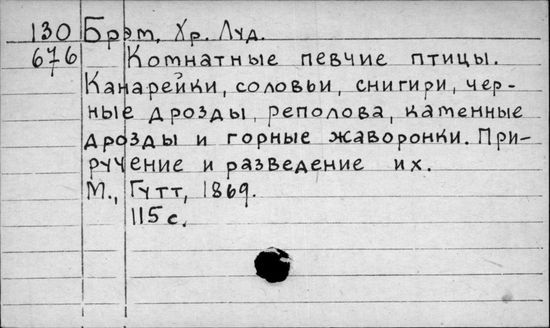 130 Брэм, Хр. Луд.
676 Комнатные певчие птицы.
Канарейки, соловьи, снигири, чер-
ные дрозды, реполова, каменные
дрозды и горные жаворонки. При-
ручение и разведение их.
М., Гутт, 1869.
115 с.